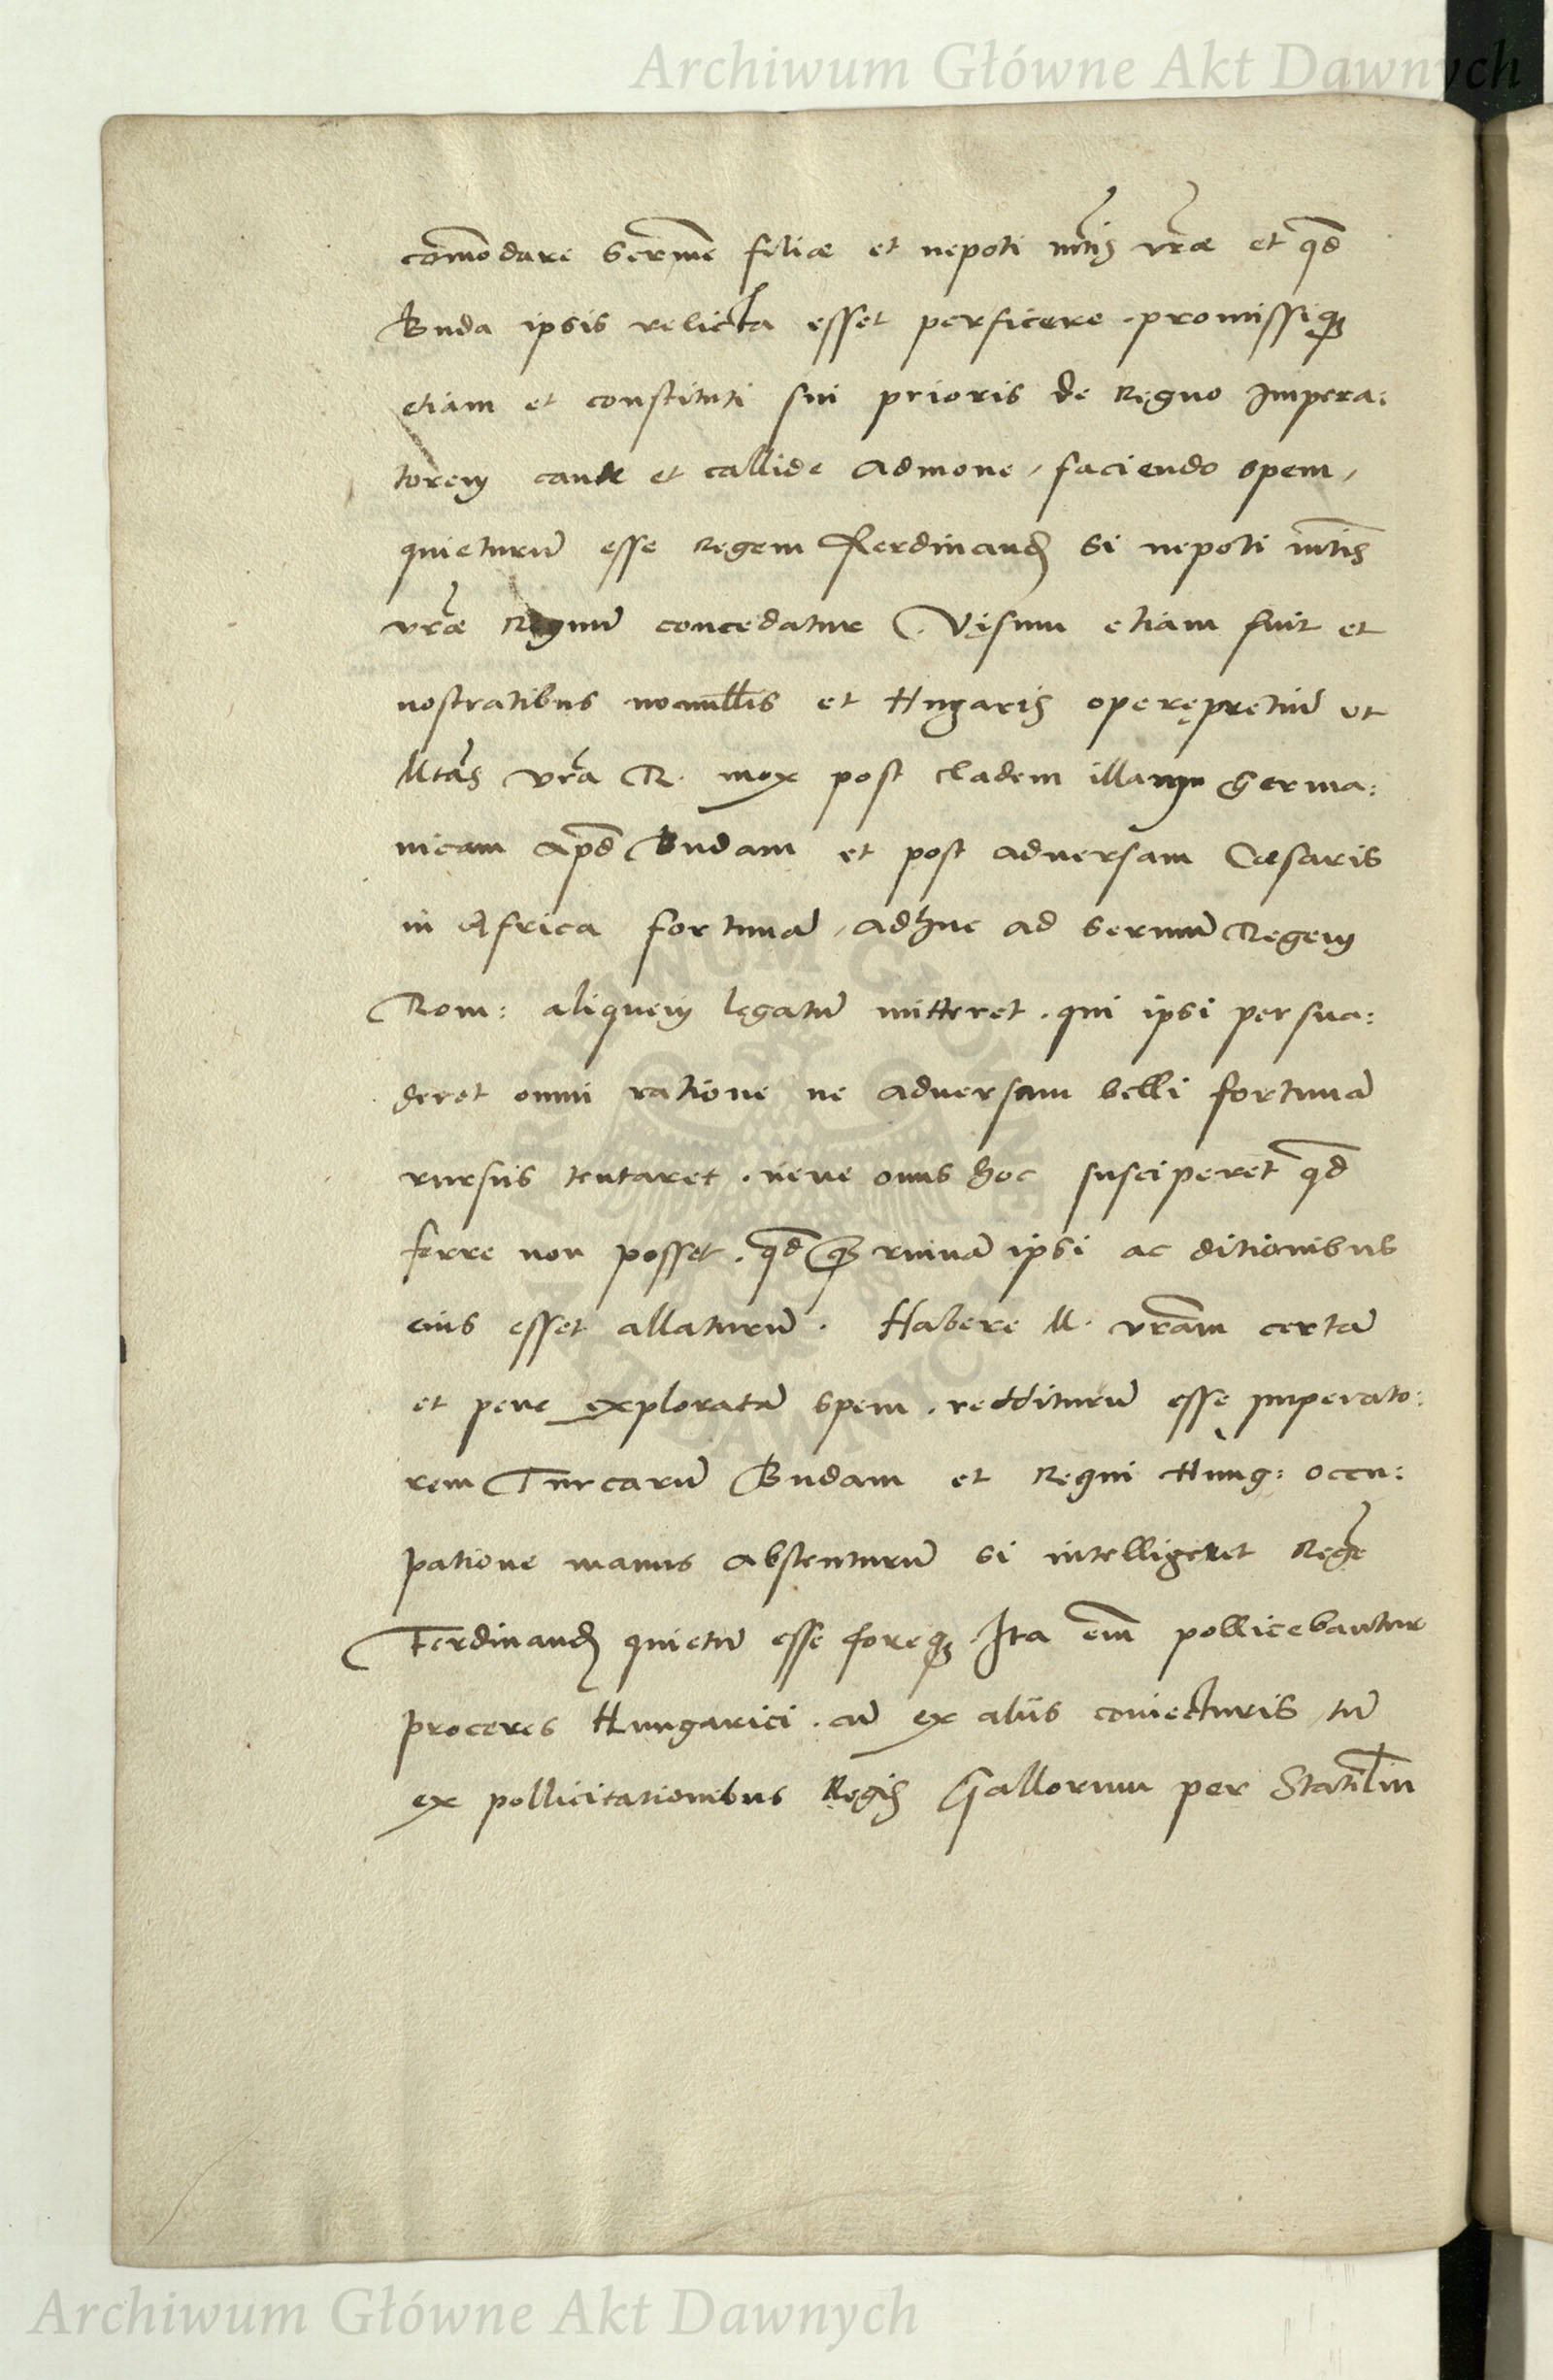 Archiwum Główne Akt Dawnych
com̄odare serm̄e filiæ et nepoti mt̄is vr̄æ et qd̄
Buda ipsis relicta esset perficere . promissiq3
etiam et constituti sui prioris de Regno Impera:
torem caute et callide admone, faciendo spem,
quieturū esse Regem Ferdinandū si nepoti mt̄is
vr̄æ Regnū concedatur. Visum etiam fuit et
nostratibus nonnullis et Hungaris operępretiū ut
Mtās vr̄a R. mox post cladem illam Germa:
nicam apd̄ Budam et post adversam Cæsaris
in Africa fortunā, adhuc ad sermū Regem
Rom: aliquem legatū mitteret . qui ipsi persua:
deret omni ratione ne adversam belli fortunā
rursus tentaret . neve onus hoc susciperet qd̄
ferre non posset . qd̄q3 ruinā ipsi ac ditionibus
eius esset allaturū . Habere M. vrām certā
et pene exploratā spem . redditurū esse Imperato:
rem Turcarū Budam et Regni Hung: occu:
patione manus abstenturū si intelligeret Regē
Ferdinandū quietū esse foreq3 . Ita em̄ pollicebantur
proceres Hungarici . cū ex aliis coniecturis tū
ex pollicitationibus Regis Gallorum per Statiliū
ARCHIWUM GŁÓWNE AKT DAWNYCH
Archiwum Główne Akt Dawnych